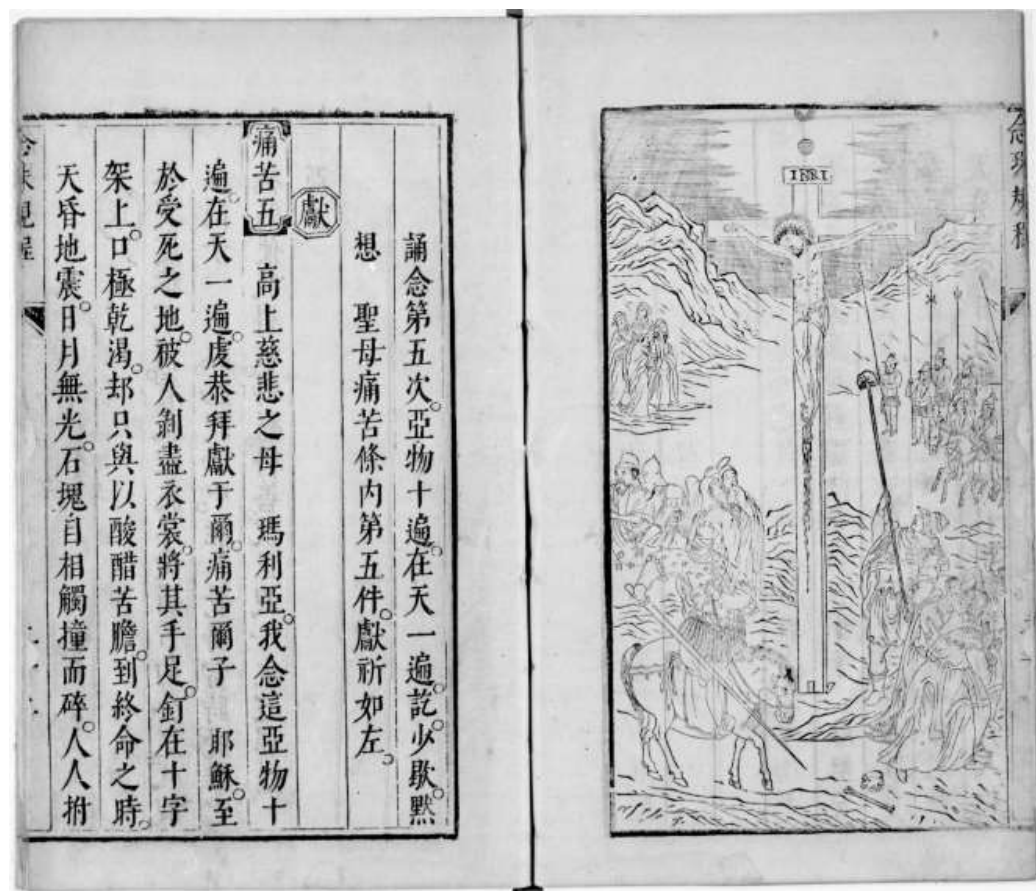 念珠規程
INRI
誦念第五次。亞物十遍。在天一遍。訖。少歇。默
想　聖母痛苦條內第五件。獻祈如左。
獻
痛苦五　高上慈悲之母　瑪利亞。我念這亞物十
遍。在天一遍。虔恭拜獻于爾。痛苦爾子　耶穌。至
於受死之地。被人剝盡衣裳。將其手足。釘在十字
架上。口極乾渴。却只與以酸醋苦膽。到終命之時。
天昏地震。日月無光。石塊自相觸撞而碎。人人拊
念珠規程